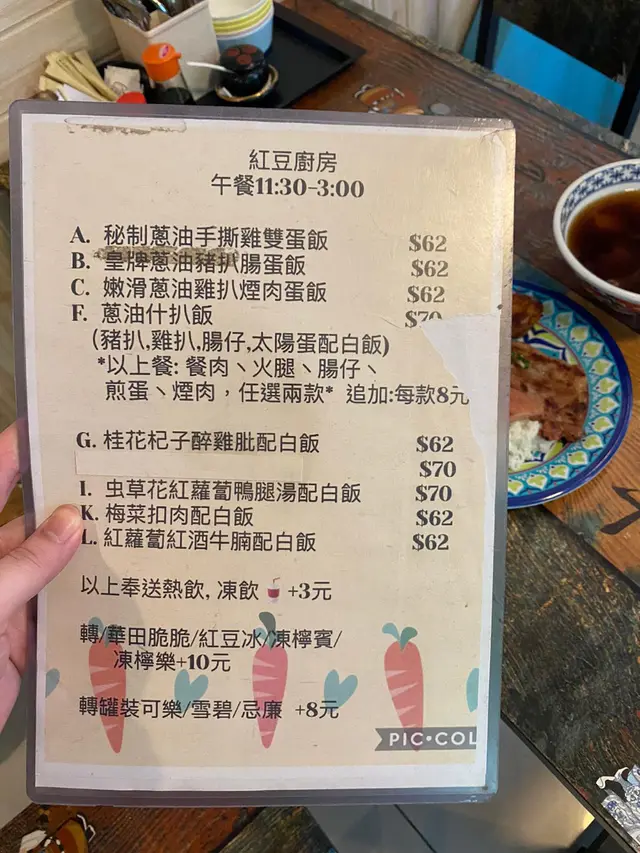 紅豆廚房
午餐11:30-3:00
A. 秘制蔥油手撕雞雙蛋飯 $62
B. 皇牌蔥油豬扒腸蛋飯 $62
C. 嫩滑蔥油雞扒煙肉蛋飯 $62
F. 蔥油什扒飯 $70
(豬扒,雞扒,腸仔,太陽蛋配白飯)
*以上餐: 餐肉、火腿、腸仔、
煎蛋、煙肉，任選兩款* 追加:每款8元
G. 桂花杞子醉雞肶配白飯 $62
$70
I. 虫草花紅蘿蔔鴨腿湯配白飯 $70
K. 梅菜扣肉配白飯 $62
L. 紅蘿蔔紅酒牛腩配白飯 $62
以上奉送熱飲, 凍飲 +3元
轉/華田脆脆/紅豆冰/凍檸賓/
凍檸樂+10元
轉罐裝可樂/雪碧/忌廉 +8元
PIC•COL